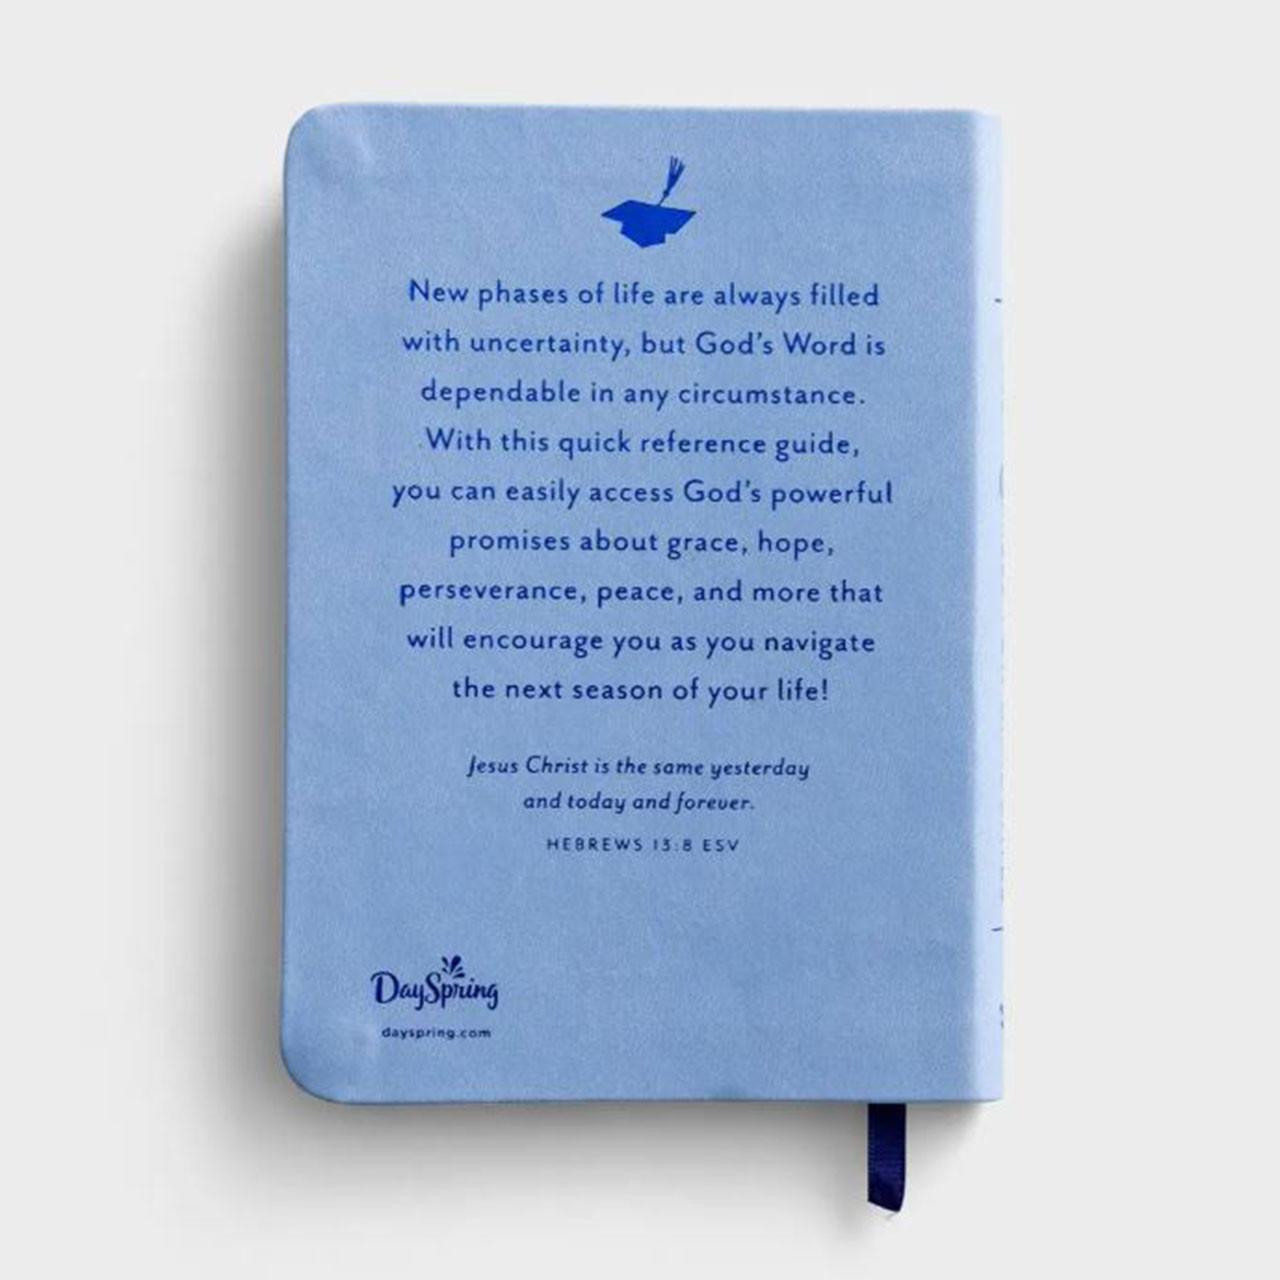 New phases of life are always filled
with uncertainty, but God's Word is
dependable in any circumstance.
With this quick reference guide,
you can easily access God's powerful
promises about grace, hope,
perseverance, peace, and more that
will encourage you as you navigate
the next season of your life!
Jesus Christ is the same yesterday
and today and forever.
HEBREWS 13:8 ESV
DaySpring
dayspring.com